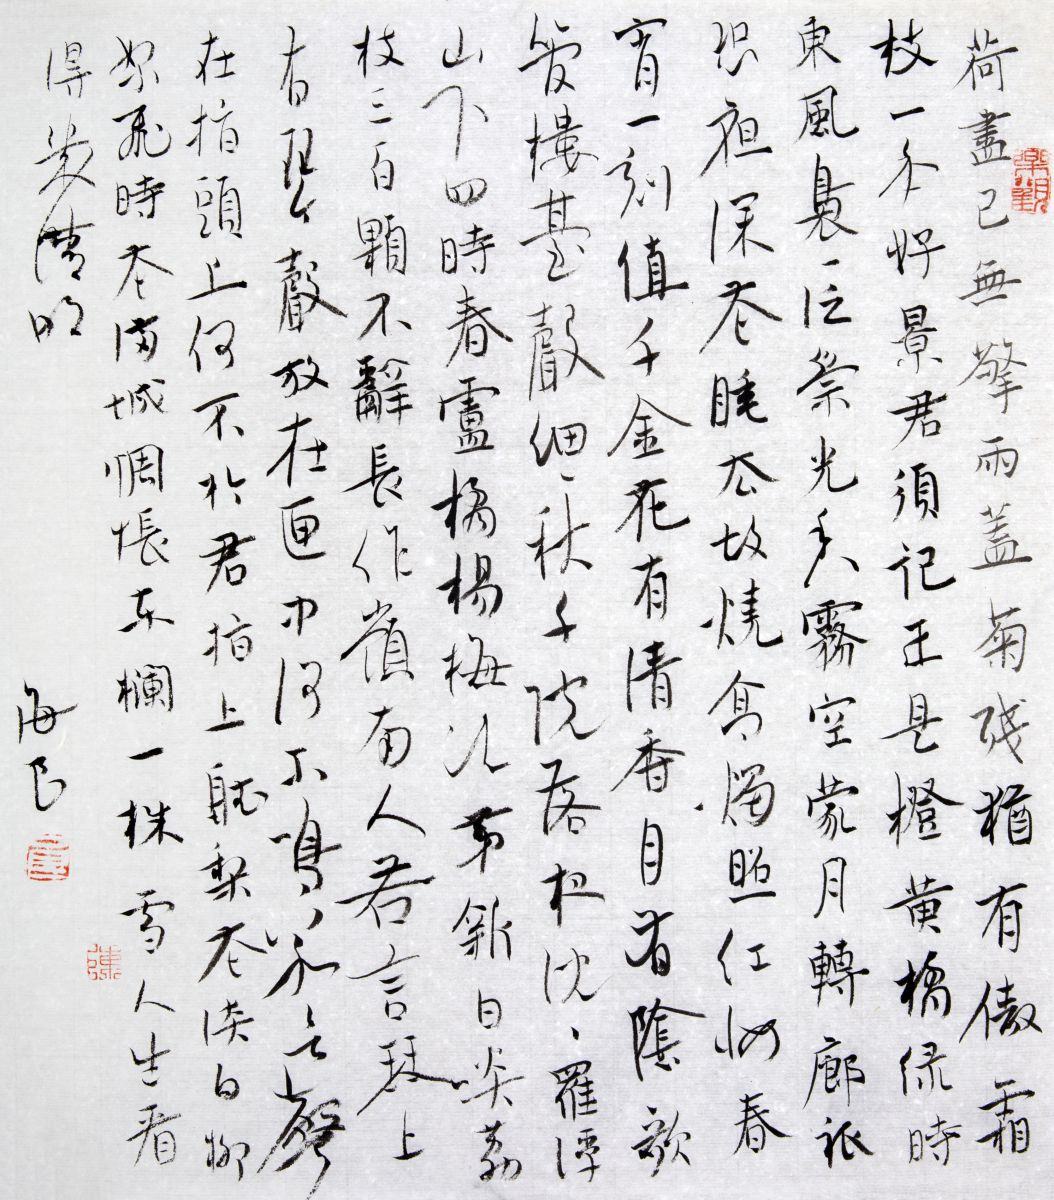 荷盡已無擎雨蓋菊殘猶有傲霜
枝一年好景君須記正是橙黃橘綠時
東風裊裊泛崇光香霧空蒙月轉廊祗
恐夜深花睡去故燒高燭照紅妝春
宵一刻值千金花有清香月有陰歌
管樓臺聲細細秋千院落夜沈沈羅浮
山下四時春盧橘楊梅次第新日啖荔
枝三百顆不辭長作嶺南人若言琴上
有琴聲放在匣中何不鳴若言聲
在指頭上何不於君指上聽梨花淡白柳
深青柳絮飛時花滿城惆悵東欄一株雪人生看
得幾清明
海民